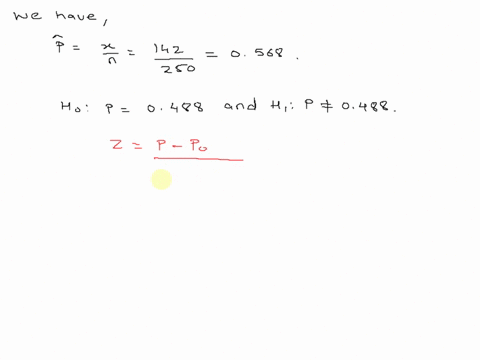 we have,
p̂ = x/n = 142/250 = 0.568.
H₀: P = 0.488 and H₁: P ≠ 0.488.
Z = P - P₀